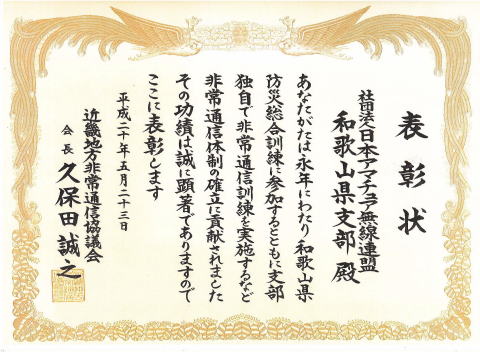 表彰状
社団法人日本アマチュア無線連盟
和歌山県支部 殿
あなたがたは永年にわたり和歌山県
防災総合訓練に参加するとともに支部
独自で非常通信訓練を実施するなど
非常通信体制の確立に貢献されました
その功績は誠に顕著でありますので
ここに表彰します
平成二十年五月二十三日
近畿地方非常通信協議会
会長 久保田誠之